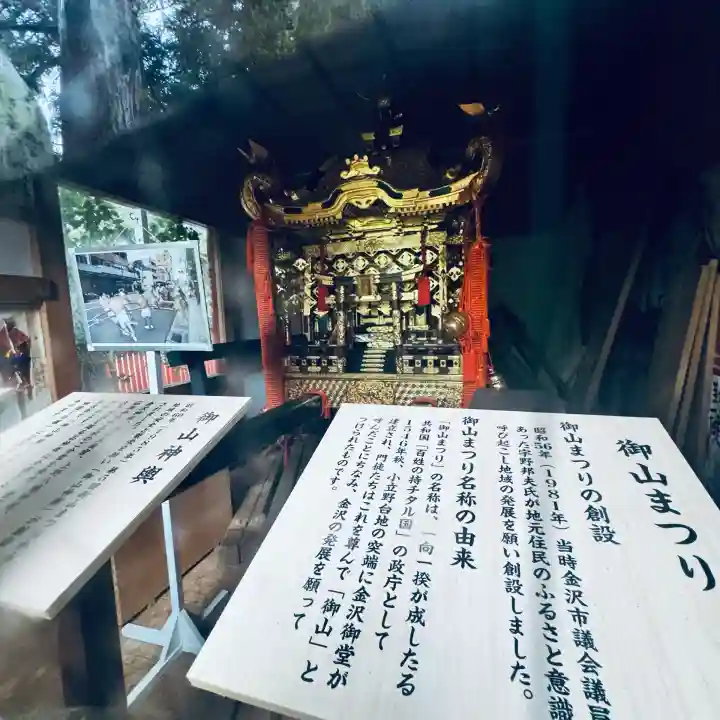 御山まつり
御山まつりの創設
昭和56年（1981年）当時金沢市議会議員
あった宇野邦夫氏が地元住民のふるさと意識
呼び起こし地域の発展を願い創設しました。
御山まつり名称の由来
「御山まつり」の名称は、一向一揆が成したる
共和国「百姓の持チタル国」の政庁として
1546年秋、小立野台地の突端に金沢御堂が
建立され、門徒たちはこれを尊んで「御山」と
呼んだことにちなみ、金沢の発展を願って
つけられたものです。
御山神輿